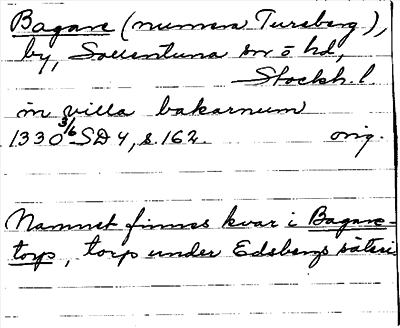 Bagare (numera Tureberg),
by, Sollentuna sn o hd,
Stockh. l.
in villa bakarnum
1330 3/6 SD 4, s. 162. orig.
Namnet finnes kvar i Bagare-
torp, torp under Edsbergs säteri